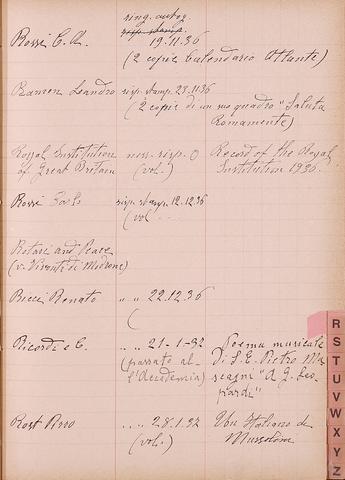 ring. autog.
Rossi C. A. 19.11.36
(2 copie Calendario Atlante)
Ramon Leandro risp. stamp. 23.11.36
(2 copie di un suo quadro "Saluta
Romamente)
Royal Institution ness. risp. O Record of the Royal
of Great Britain (vol.) Institution 1936.
Rossi risp. stamp. 12.12.36
(vol
Rotari and Peace
(v. Visconti di Modrone)
Ricci Renato " " 22.12.36
(
Ricordi e C. " " 21-1-32 Poema musicale
(passato al- di S. E. Pietro Ma
l'Accademia) scagni "A G. Leo
pardi"
Rost " " 28.1.32 Italiano de
(vol.) Mussolini
R
S
T
U
V
W
X
Y
Z